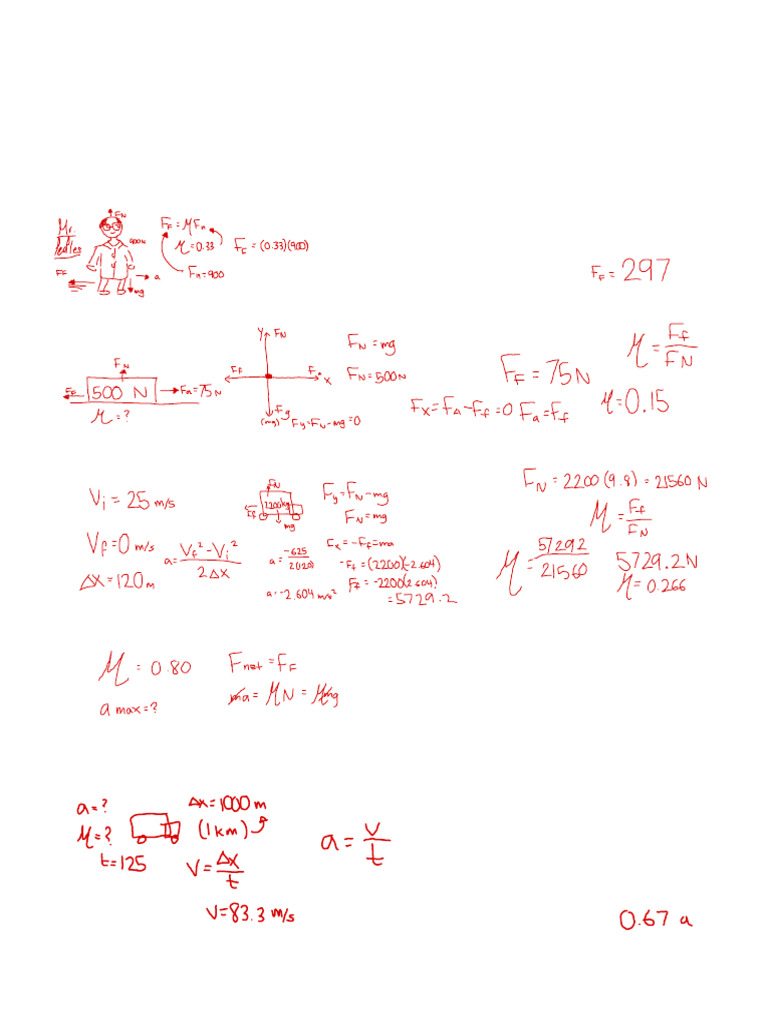 Mr.
F_N
900N
F_F
a
mg
F_F = μF_n
μ = 0.33
F_n = 900
F_F = (0.33)(900)
F_F = 297
F_N
F_F
500 N
F_a = 75 N
μ = ?
y
F_N
F_F
x
F_g
(mg)
F_y = F_N - mg = 0
F_N = mg
F_N = 500 N
F_F = 75 N
F_x = F_A - F_f = 0
F_a = F_f
μ = F_f / F_N
μ = 0.15
V_i = 25 m/s
V_f = 0 m/s
Δx = 120 m
a = V_f² - V_i² / 2Δx
F_N
2200kg
F_f
mg
a = -625 / 2(120)
a = -2.604 m/s²
F_y = F_N - mg
F_N = mg
F_x = -F_f = ma
-F_f = (2200)(-2.604)
F_f = -2200(2.604)
= 5729.2
F_N = 2200(9.8) = 21560 N
μ = F_f / F_N
μ = 5729.2 / 21560
5729.2 N
μ = 0.266
μ = 0.80
a max = ?
F_net = F_F
ma = μN = μmg
a = ?
μ = ?
t = 125
Δx = 1000 m
(1 km)
V = Δx / t
V = 83.3 m/s
a = v / t
0.67 a